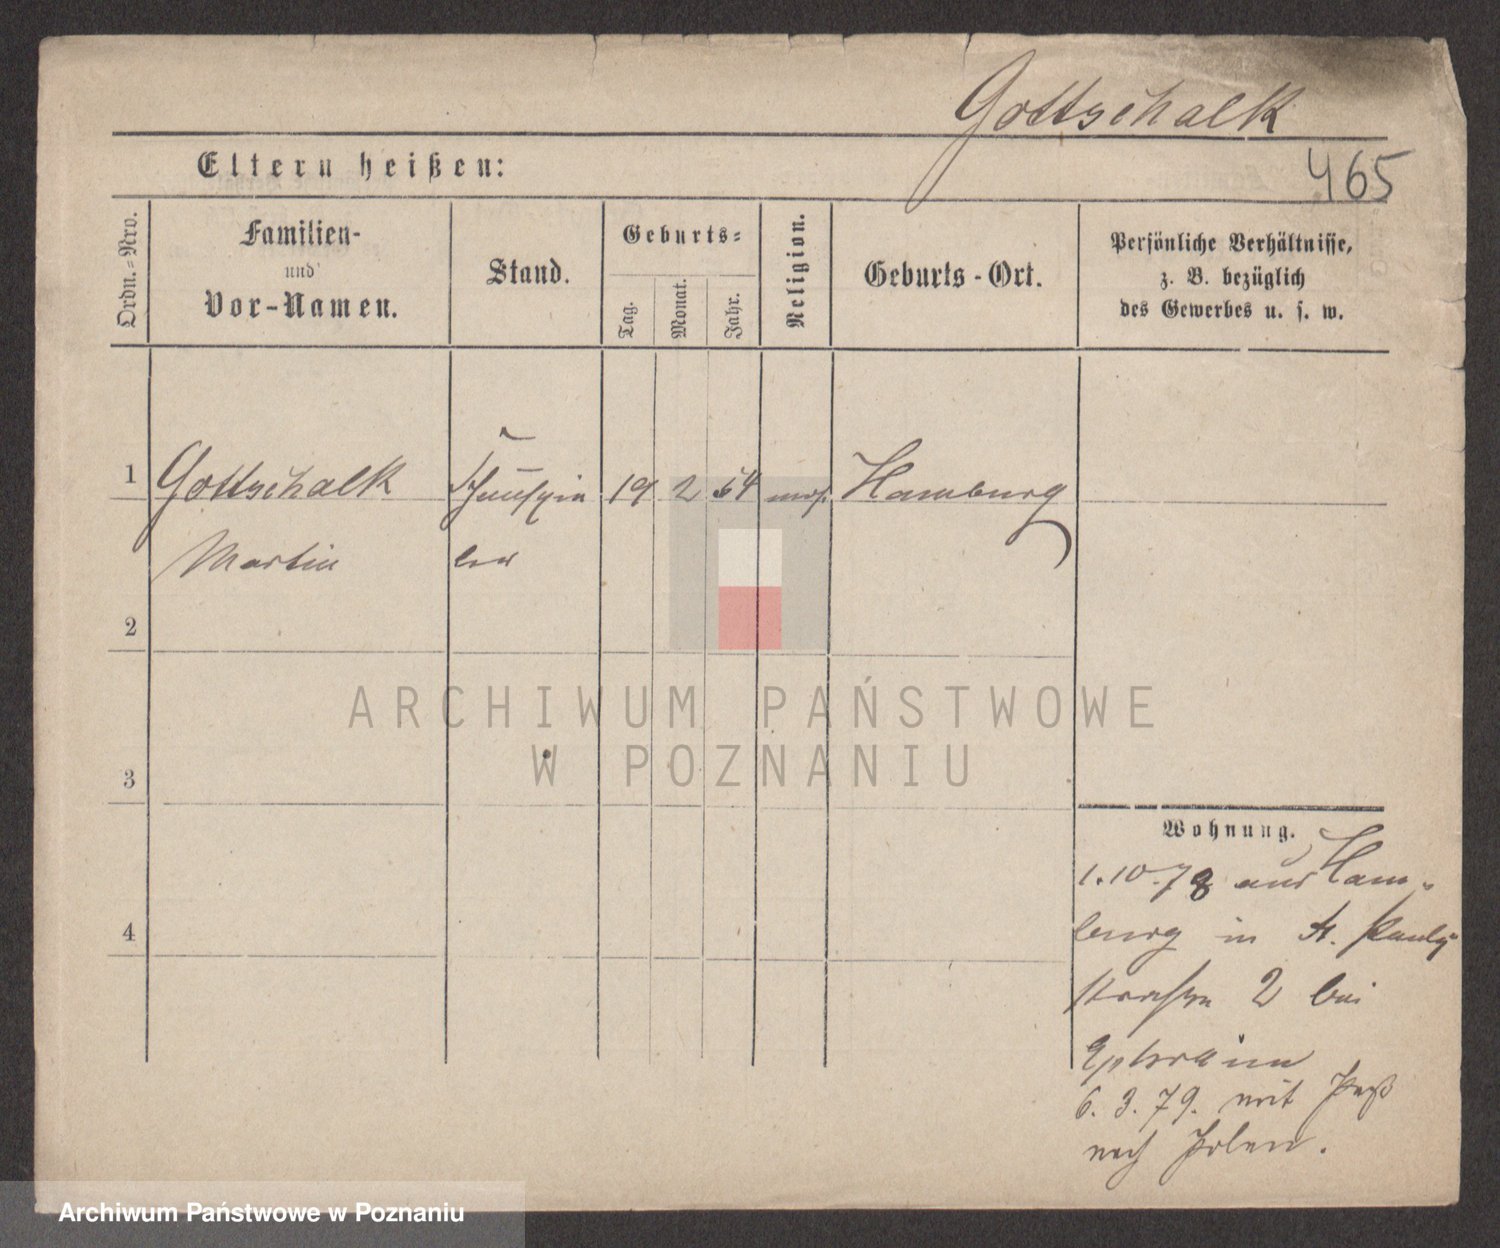 Gottschalk
465
Eltern heißen:
Ordn.=Nro.
Familien-
und
Vor-Namen.
Stand.
Geburts=
Tag.
Monat.
Jahr.
Religion.
Geburts-Ort.
Persönliche Verhältnisse,
z. B. bezüglich
des Gewerbes u. s. w.
1 Gottschalk Schauspie 19 2 54 mos. Hamburg
Martin ler
2
3
4
Wohnung.
1.10.78 aus Ham-
burg in St. Pauly
strasse 2 bei
Ephraim
6. 3. 79. mit Paß
nach Polen.
ARCHIWUM PAŃSTWOWE
W POZNANIU
Archiwum Państwowe w Poznaniu